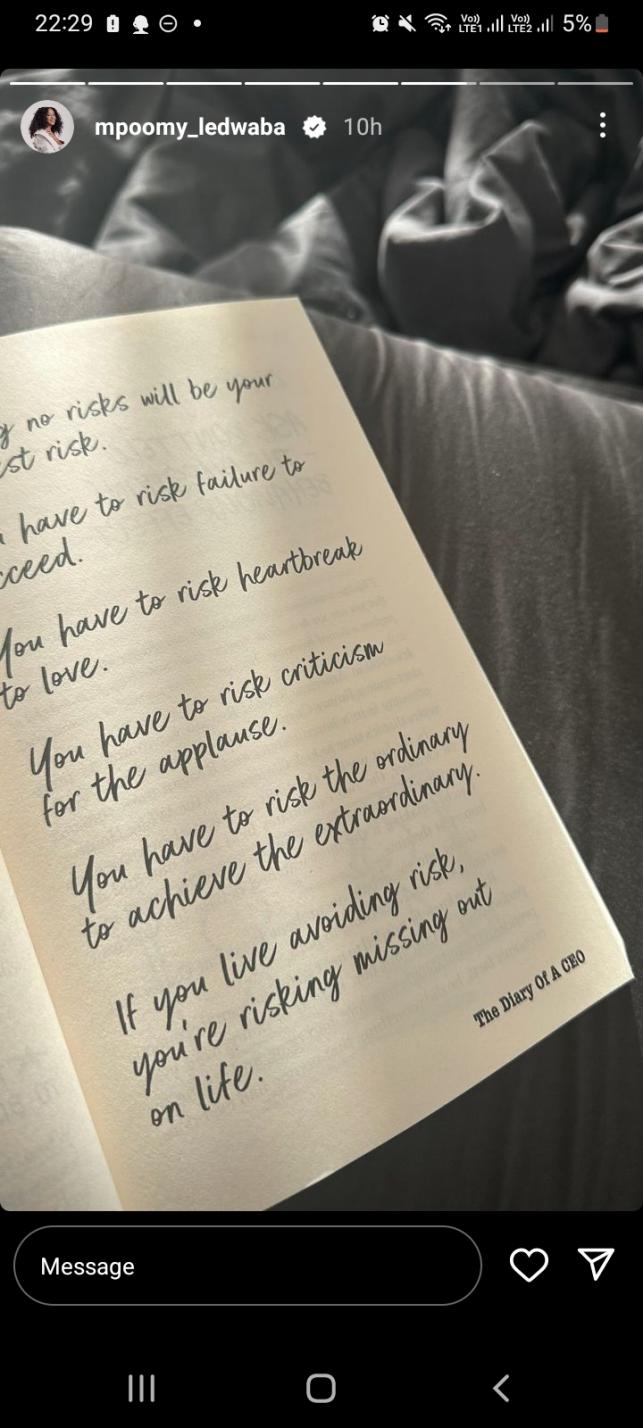 22:29
Vo)) LTE1 Vo)) LTE2 5%
mpoomy_ledwaba 10h
no risks will be your
risk.
have to risk failure to
You have to risk heartbreak
to love.
You have to risk criticism
for the applause.
You have to risk the ordinary
to achieve the extraordinary.
If you live avoiding risk,
you're risking missing out
on life.
The Diary Of A CEO
Message